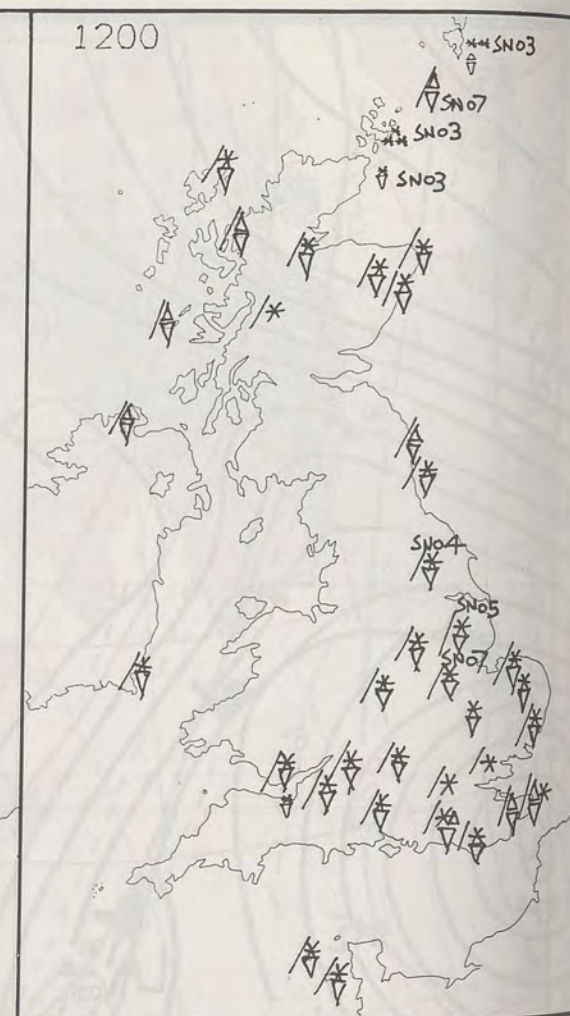 1200
SN03
SN07
SN03
SN03
SN04
SN05
SN07